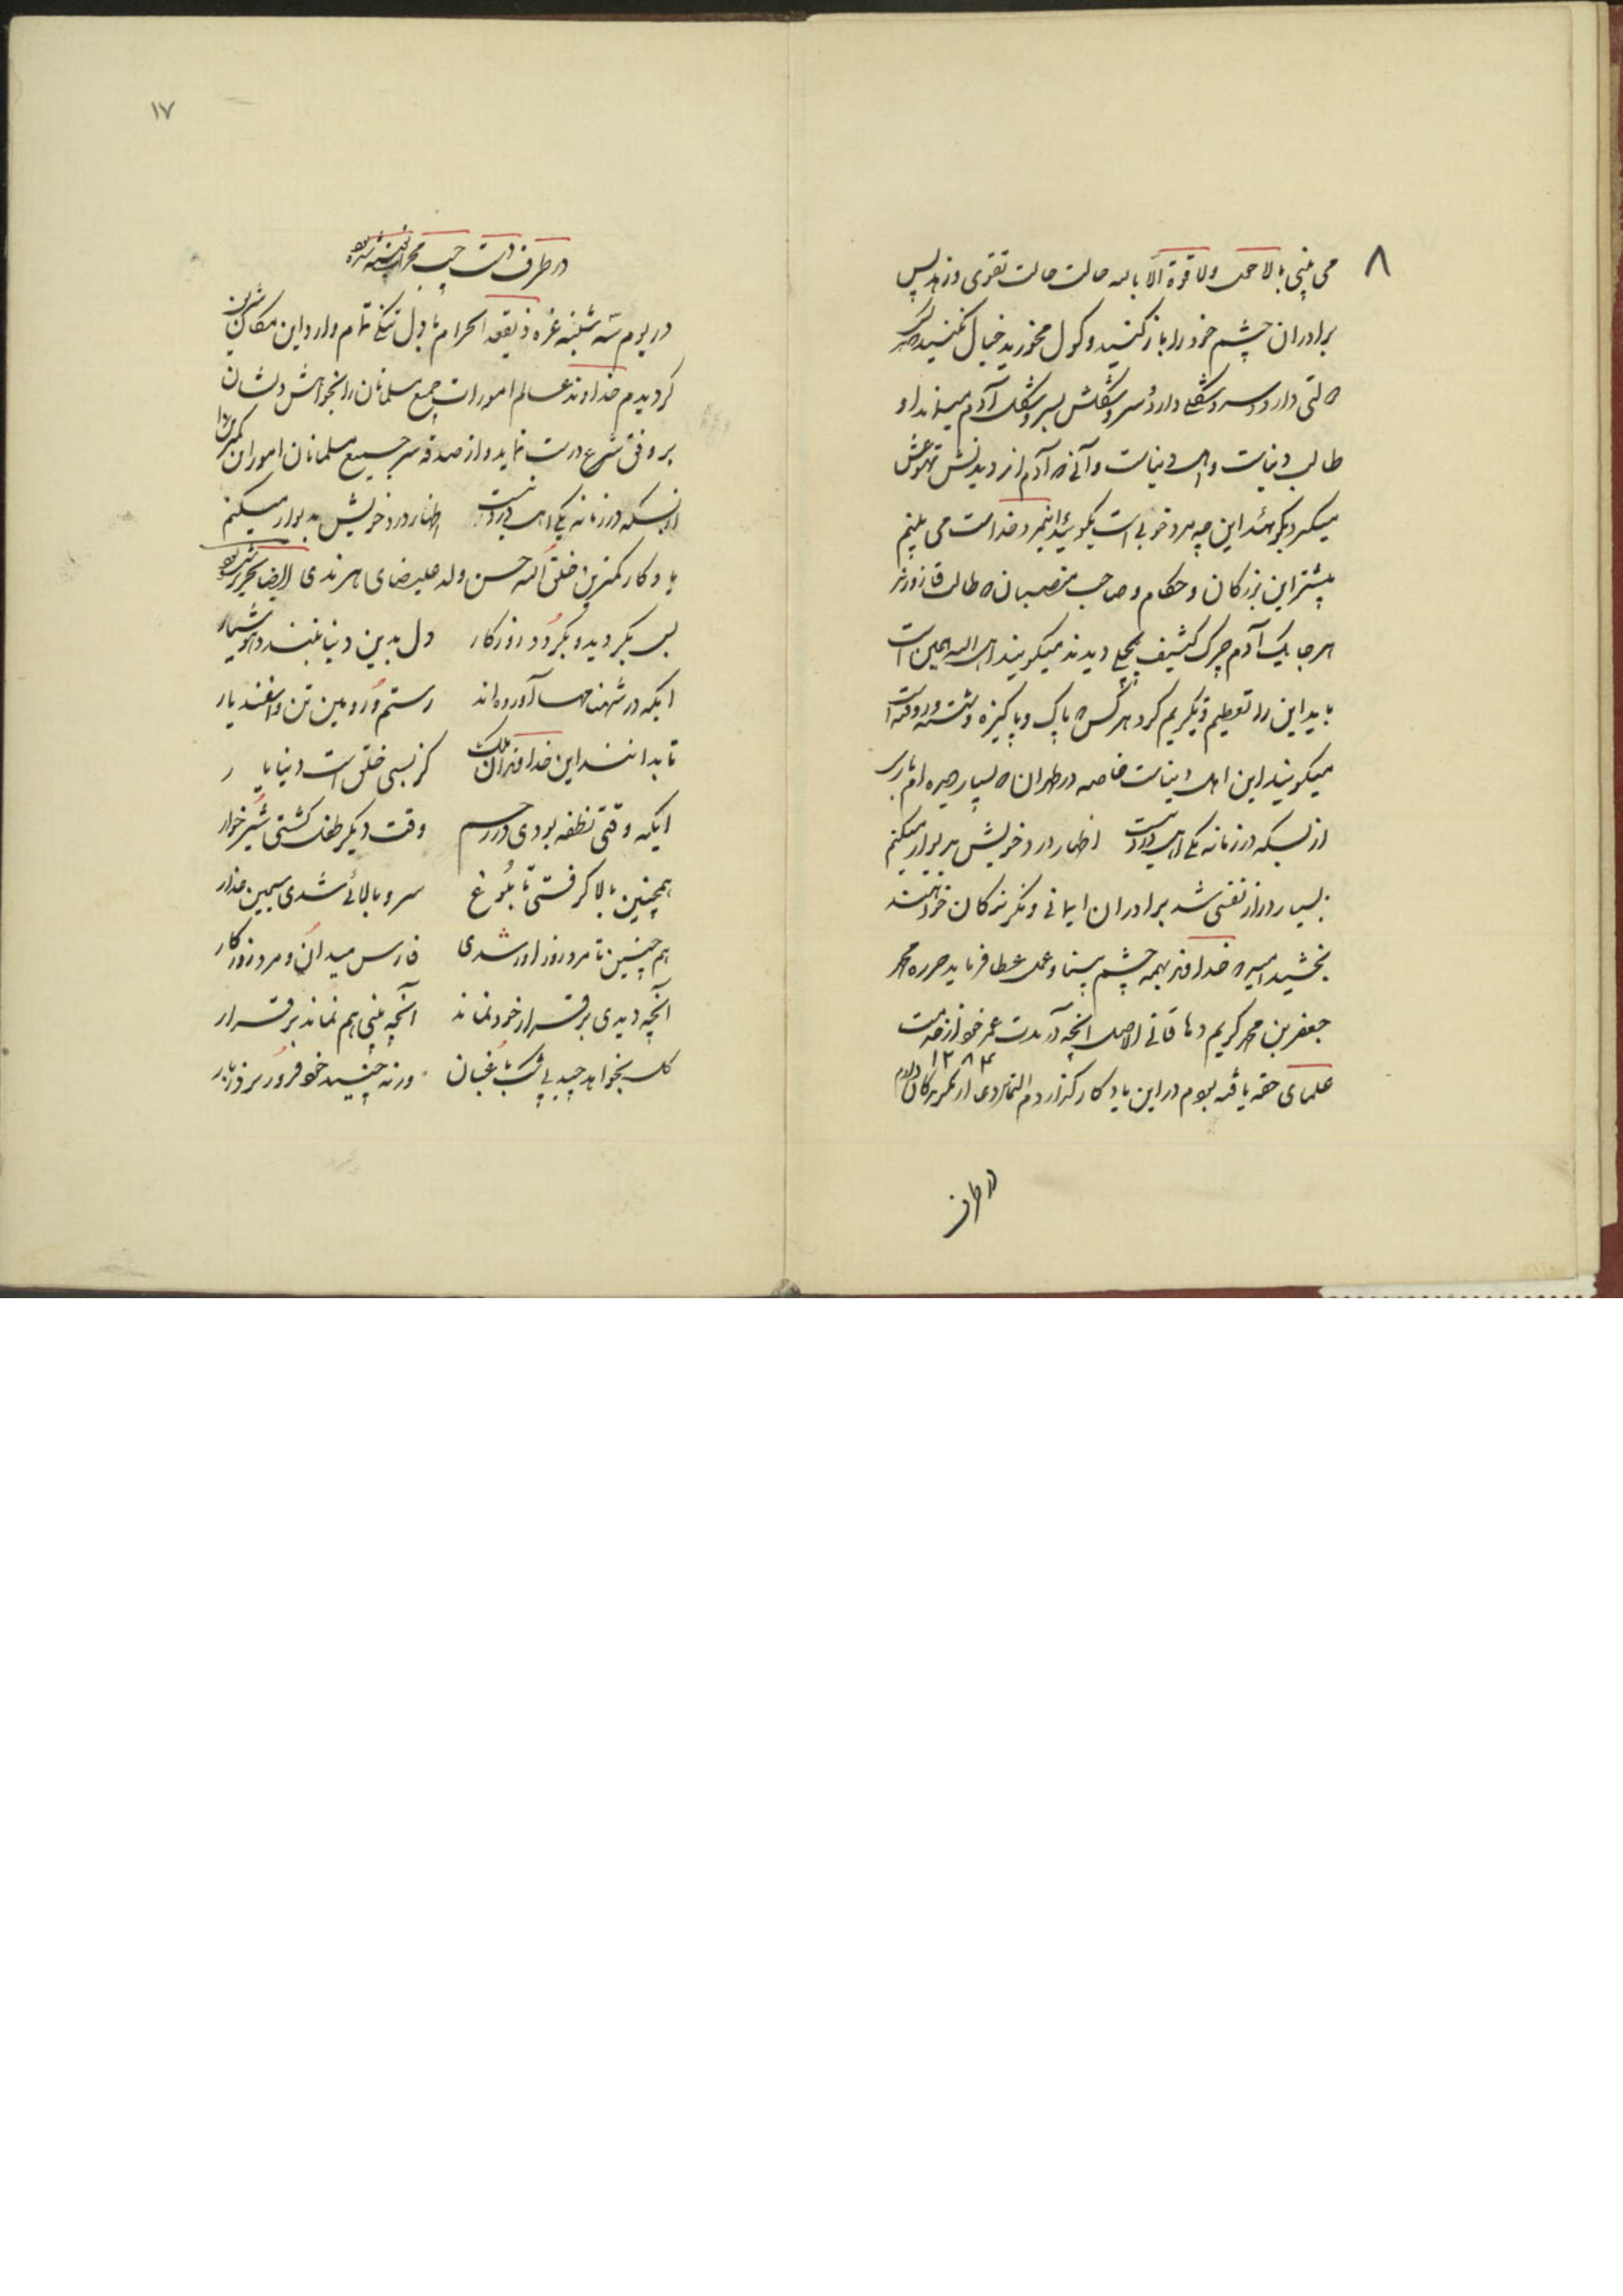 ۸
می بینی بالا حول ولا قوة الّا بالله حالت حالت تقوی وزهد پس
برادران چشم خود را باز کنید و کول مخورید خیال نکنید هر کس
دارد و سر و شکلی دارد و سر و شکلش بسر و شکل آدم میماند او
طالب دنیاست واهل دنیاست و آنی که آدم از دیدنش
میکیرد بکوئید این چه مرد خوبی است بکوئید این مرد خداست می بینم
بیشتر این بزرکان و حکام و صاحب منصبان که طالب
هر جا یک آدم چرک کثیف دیدند میکویند اهل الله همین است
باید این را تعظیم و تکریم کرد هر کس که پاک و پاکیزه و شسته و رفته است
میکویند این اهل دنیاست خاصه در طهران که بسیار
از بسکه در زمانه یکی اهل درد نیست اظهار درد خویش بدیوار میکنم
بسیار دراز نفسی شد برادران ایمانی و نکرنده کان خواهند
بخشید امید که خداوند بهمه چشم بینا و عمل عطا فرماید حرره محمد
جعفر بن محمد کریم الاصل آنچه در مدت عمر خود از خدمت
۱۲۸۴
علمای حقه یافته بودم در این یادکار کزاردم التماس دعا از نکرنده کان دارم
در طرف
۱۷
در طرف دست چپ محراب نوشته شده
در یوم سه شنبه غره ذیقعده الحرام با دل تنکی تمام وارد این مکان شریف
کردیدم خداوند عالم امورات جمیع مسلمانان را بخواهش دلشان
بر وفق شرع درست نماید و از صدقه سر جمیع مسلمانان امورات کمترین را
از بسکه در زمانه یکی اهل درد نیست اظهار درد خویش بدیوار میکنم
یادکار کمترین خلق الله حسن ولد علیرضای هرندی ایضا تحریر شده
بس بکردید و بکردد روزکار دل بدین دنیا نبندد هوشیار
ایکه در شهنامها آورده اند رستم و رویین تن و اسفندیار
تا بدانند این خداوندان ملک کز بسی خلق است دنیا یا ر
ایکه وقتی نطفه بودی در رحم وقت دیکر طفل کشتی شیرخوار
همچنین بالا کرفتی تا بلوغ سرو بالائی شدی سیمین عذار
هم چنین تا مرد زور اور شدی فارس میدان و مرد روزکار
آنچه دیدی بر قرار خود نماند آنچه بینی هم نماند بر قرار
کل بخواهد چید بی شک باغبان ورنه چیند خود فرو ریزد ز بار